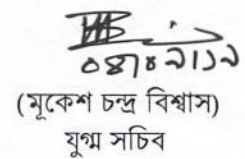 ০৪/০২/১৯
(মূকেশ চন্দ্র বিশ্বাস)
যুগ্ম সচিব